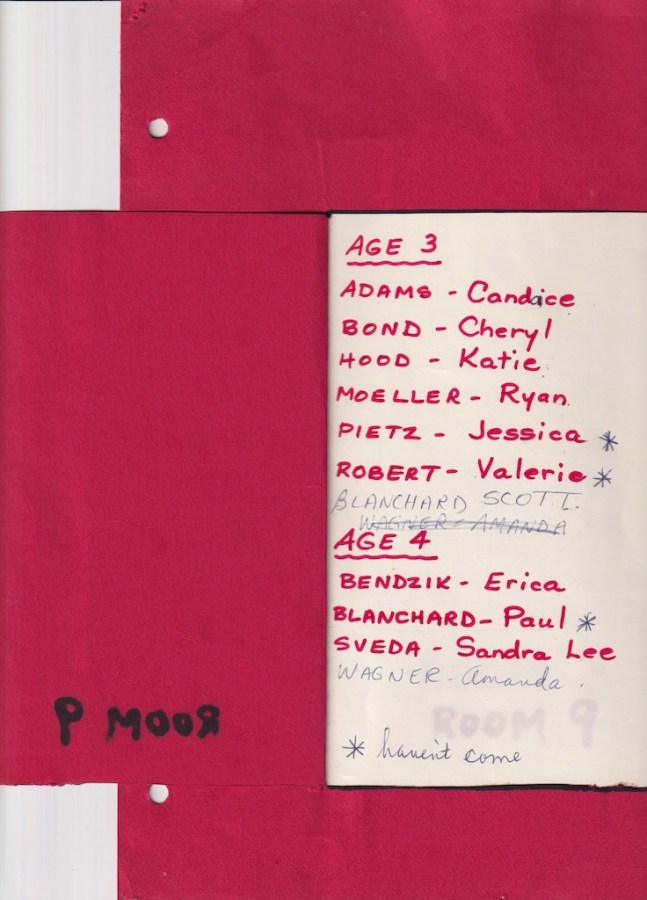 AGE 3
ADAMS - Candaice
BOND - Cheryl
HOOD - Katie
MOELLER - Ryan
PIETZ - Jessica *
ROBERT - Valerie *
BLANCHARD SCOTT.
WAGNER - AMANDA
AGE 4
BENDZIK - Erica
BLANCHARD - Paul *
SVEDA - Sandra Lee
WAGNER - Amanda.
ROOM 9
ROOM 9
* haven't come